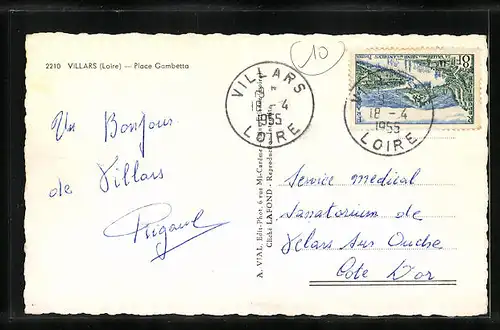 2210 VILLARS (Loire) — Place Gambetta
10
VILLARS
18 - 4
1955
LOIRE
18 - 4
1955
LOIRE
8F
Un Bonjour
de Villars
Rigaud
A. VIAL, Edit.-Phot. 6 rue Mi-Carême
Cliché LAFOND - Reproduction
Service medical
Sanatorium de
Velars sur Ouche
Côte D'or